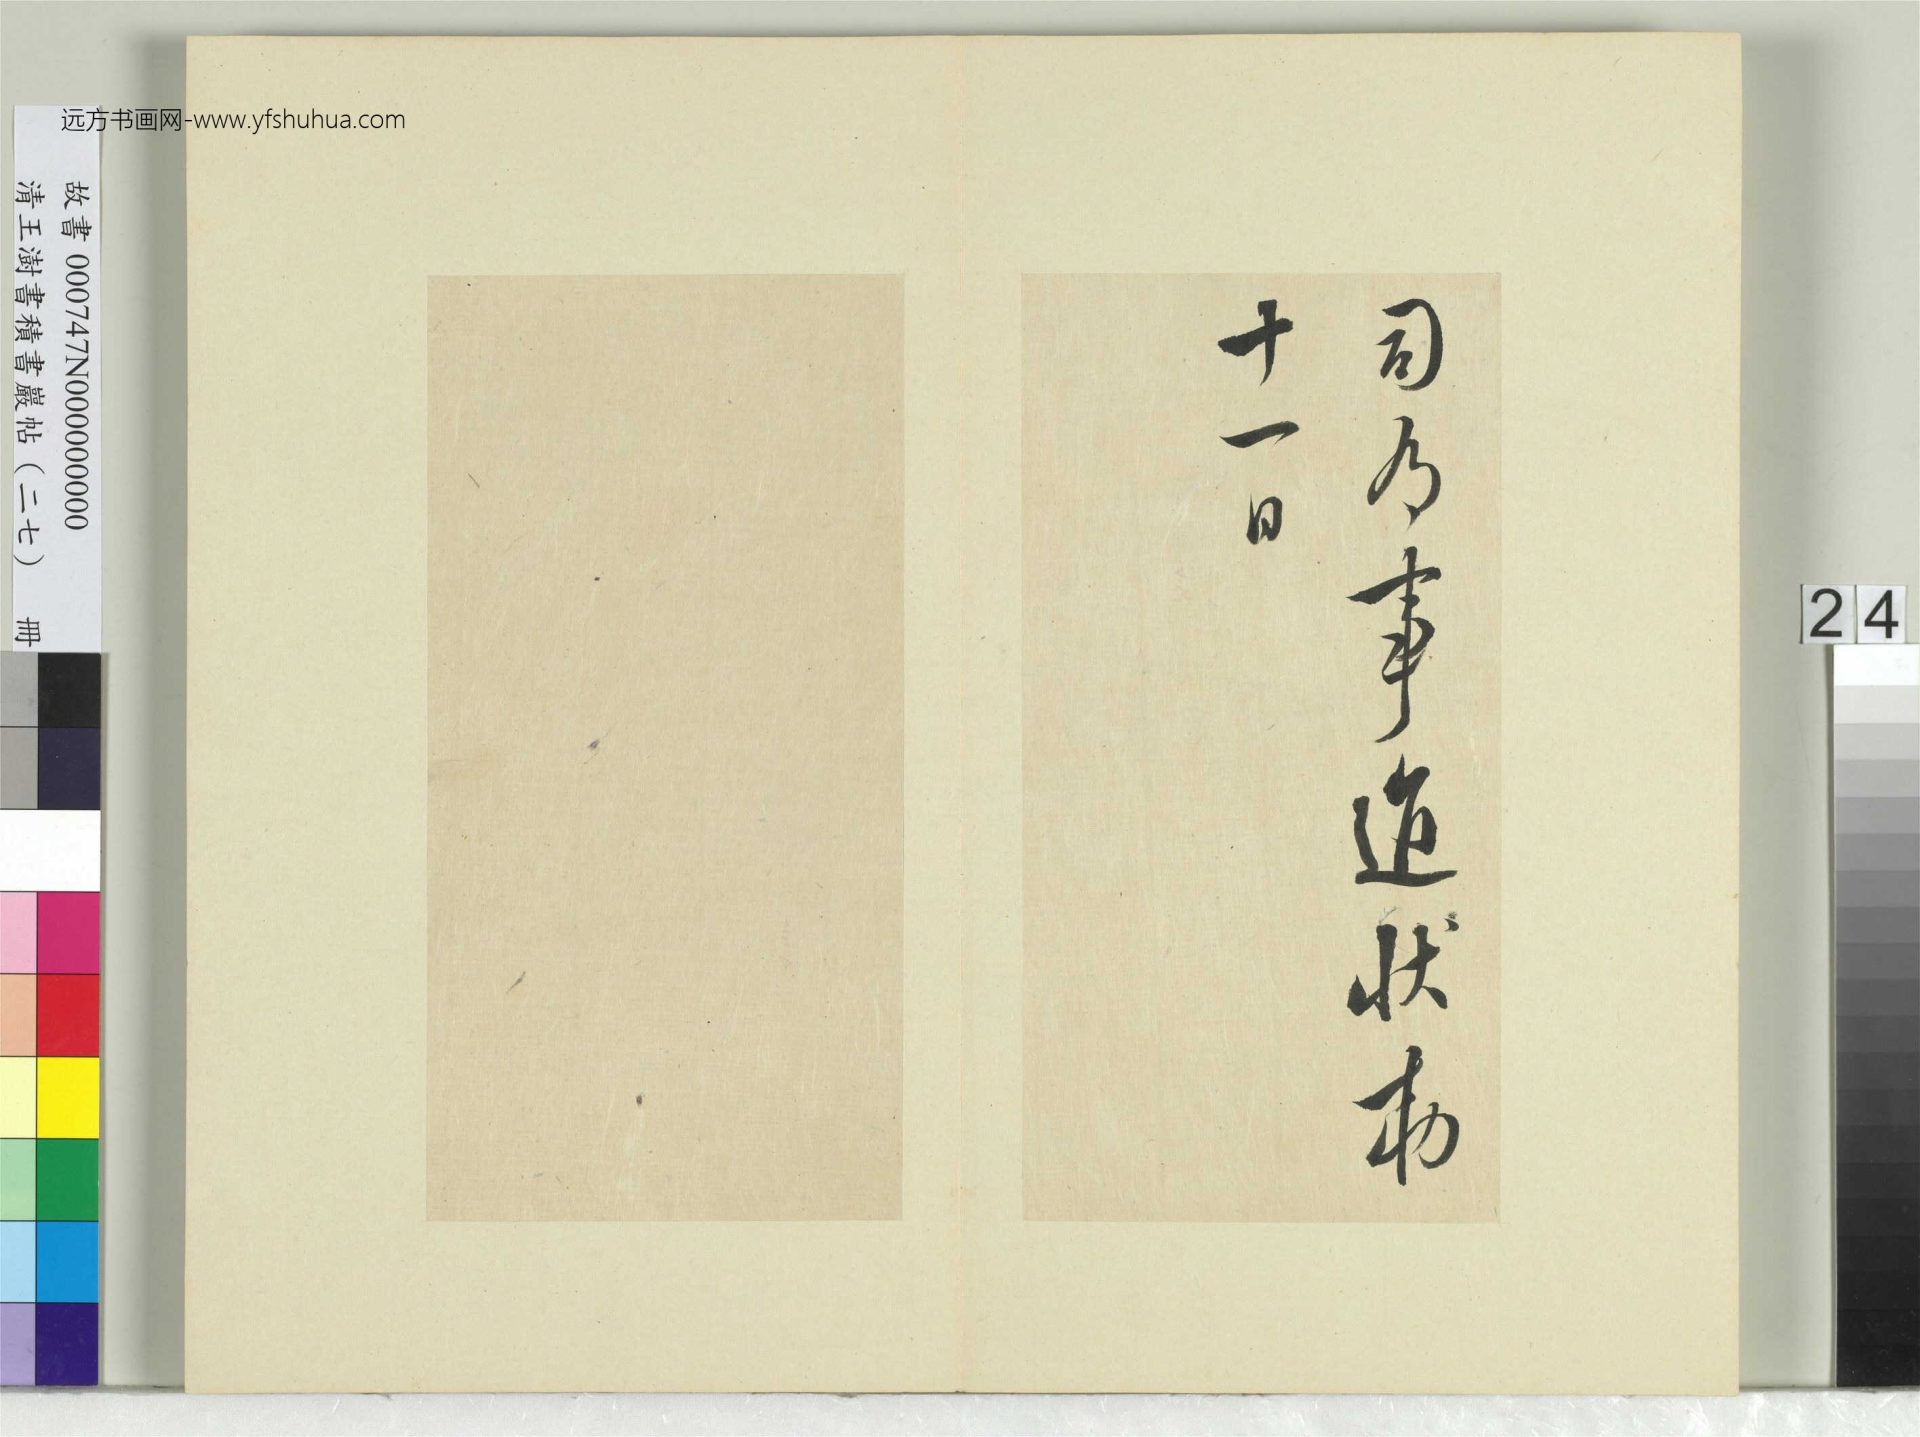 远方书画网-www.yfshuhua.com
故書 000747N000000000
清王澍書積書巖帖(二七) 冊
司乃事追状勅
十一日
24